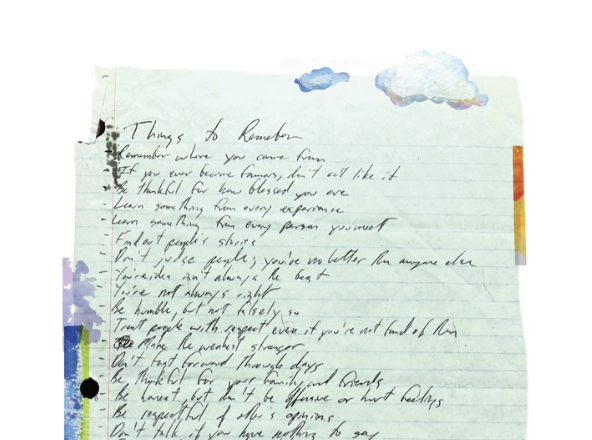 Things to Remeber
Remember where you came from
If you ever become famous, don't act like it
Be thankful for how blessed you are
Learn something from every experience
Learn something from every person you meet
Find out people's stories
Don't judge people, you're no better than anyone else
Your idea isn't always the best
You're not always right
Be humble, but not falsely so
Treat people with respect even if you're not fond of them
Make the weakest stronger
Don't fast forward through days
Be thankful for your family and friends
Be honest, but don't be offensive or hurt feelings
Be respectful of other's opinions
Don't talk if you have nothing to say